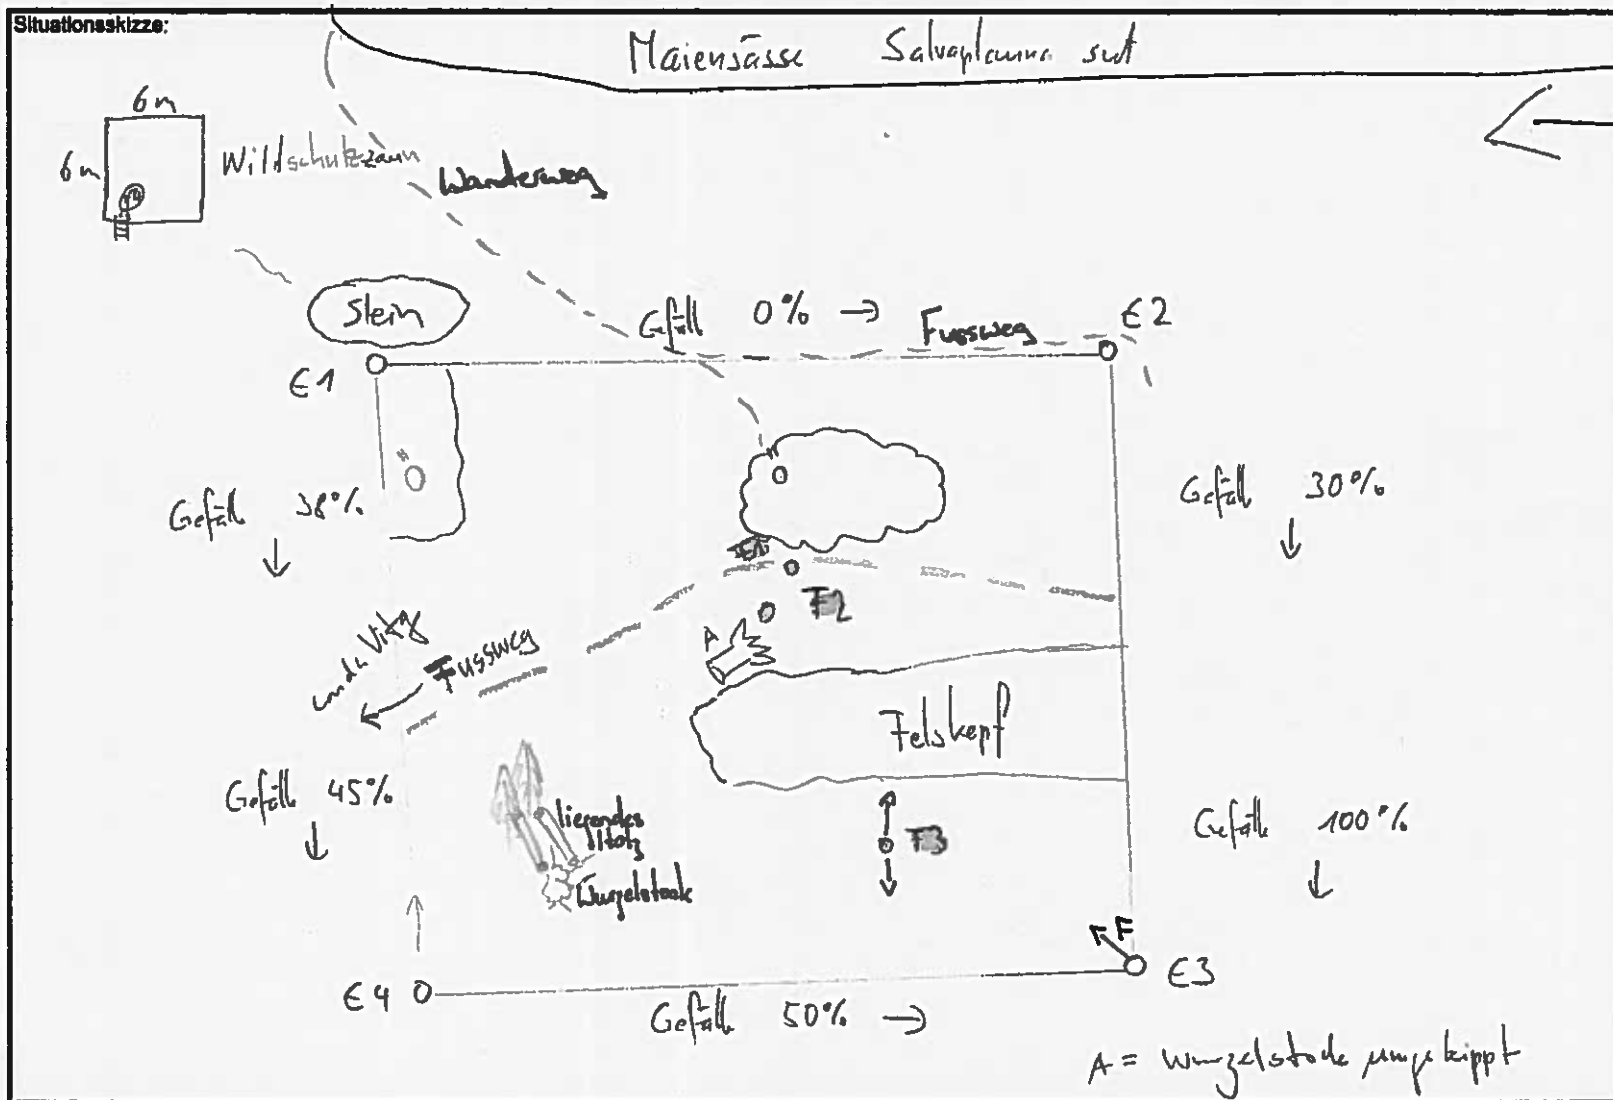 Situationsskizze:
Maiensässe
6m
6m
Wildschutzzaun
Wanderweg
Stein
Gefäll 0% →
Fussweg
E2
E1
Gefäll 38%
Gefäll 30%
F2
A
Fussweg
Felskopf
Gefäll 45%
liegendes
Holz
Wurzelstock
F3
Gefäll 100%
F
E4
E3
Gefäll 50% →
A = Wurzelstock umgekippt